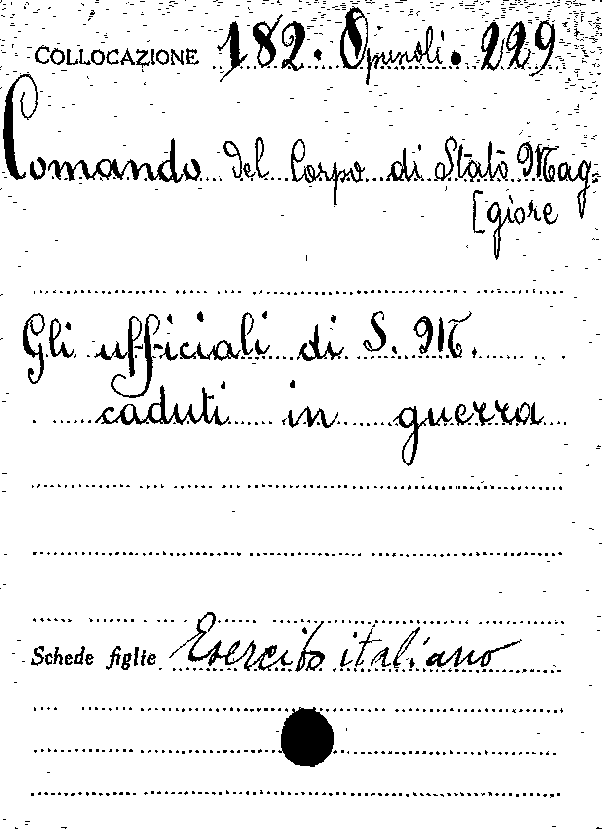 COLLOCAZIONE 182. Opuscoli. 229
Comando del Corpo di Stato Mag-
[giore
Gli ufficiali di S. M.
caduti in guerra
Schede figlie Esercito italiano